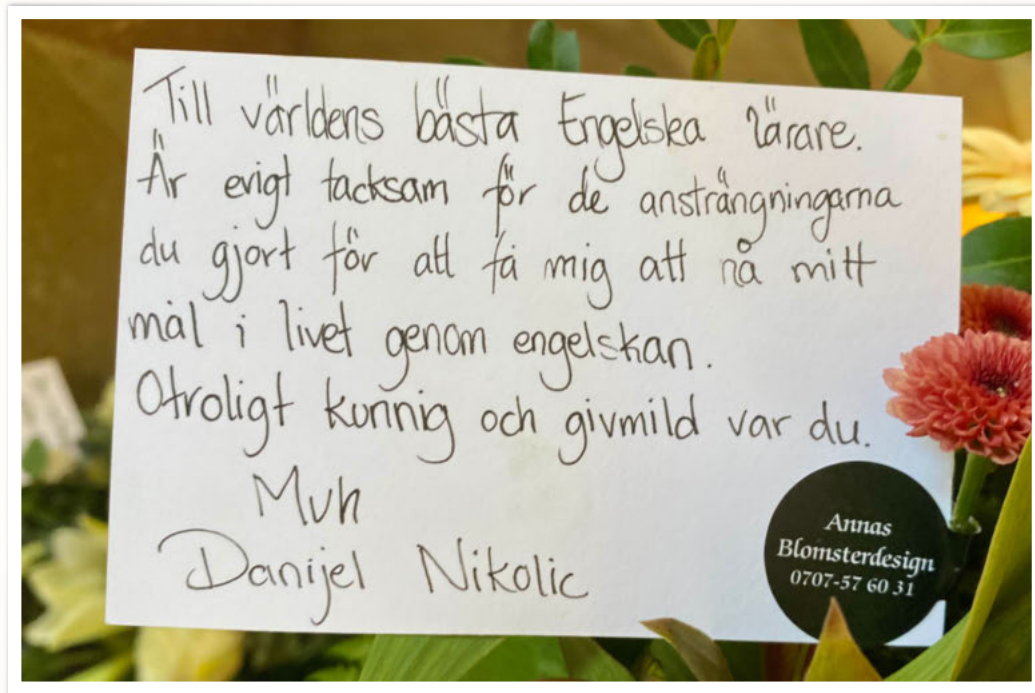 Till världens bästa Engelska lärare.
Är evigt tacksam för de ansträngningarna
du gjort för att få mig att nå mitt
mål i livet genom engelskan.
Otroligt kunnig och givmild var du.
Mvh
Danijel Nikolic
Annas
Blomsterdesign
0707-57 60 31